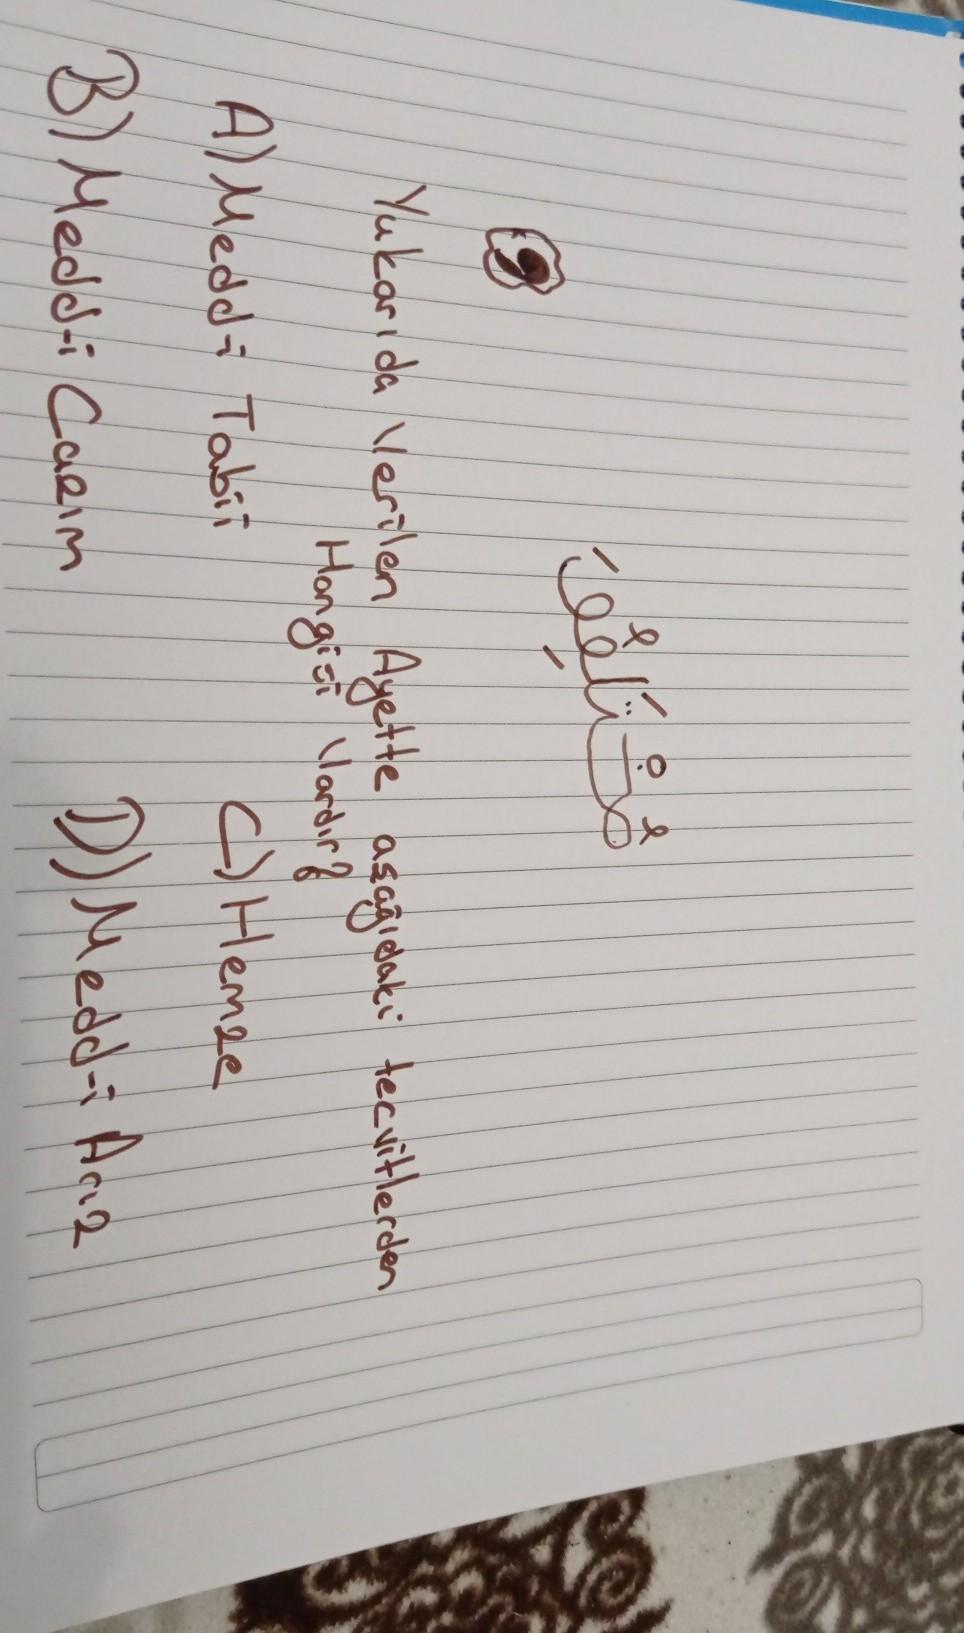 مُخْتَلِفُونَ
Yukarıda Verilen Ayette aşağıdaki tecvitlerden
Hangisi Vardır?
A) Medd-i Tabii C) Hemze
B) Medd-i Cazım D) Medd-i Arız